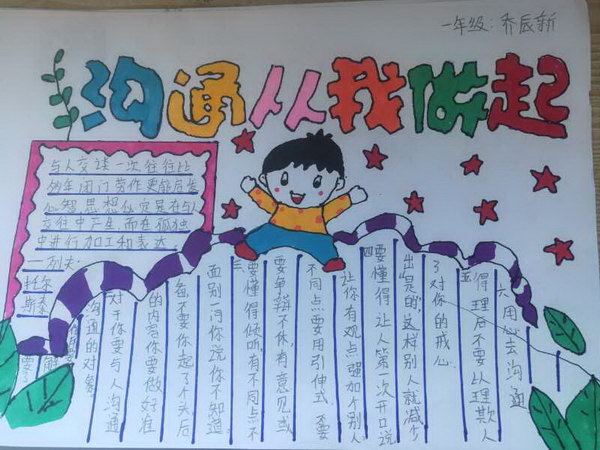 一年级：乔辰新
沟通从我做起
与人交谈一次往往比
多年闭门劳作更能启发
心智思想必定是在与人
交往中产生而在孤独
中进行加工和表达
—列夫·
托尔
斯泰
解
沟通的对象
对于你要与人沟通
的内容你要做好准
每不要你起了个头后
面别一问你说你不知道
三要懂得倾听有不同点不
要争辩不休,有意见或
不同点要用引伸式不要
让你有观点强加个别人
四要懂得让人第一次开口说
出"是的"这样别人就减少
了对你的戒心
五得理后不要以理欺人
六用心去沟通